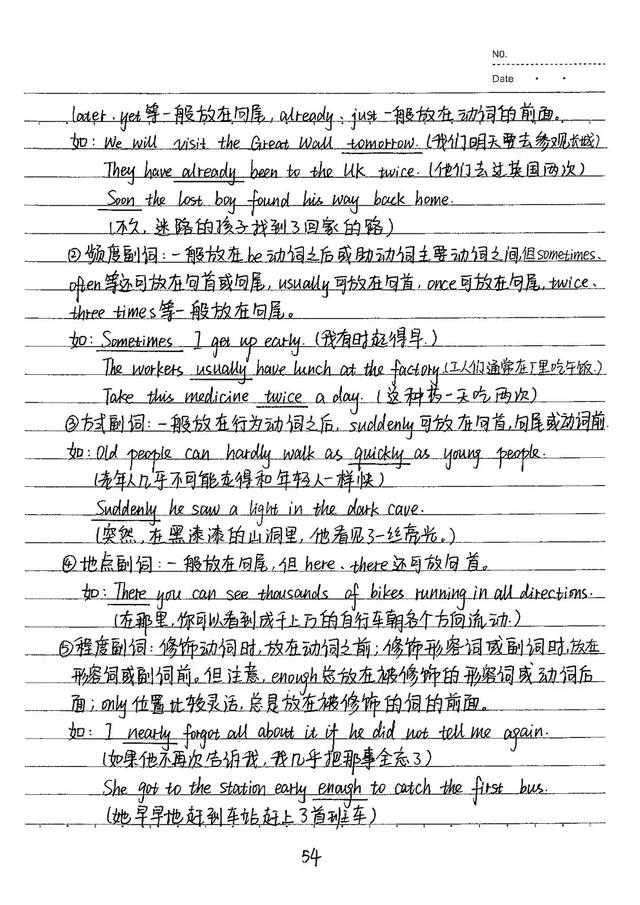 NO.
Date
later、yet等一般放在句尾, already、just一般放在动词的前面。
如: We will visit the Great Wall tomorrow. (我们明天要去参观长城)
They have already been to the UK twice. (他们去过英国两次)
Soon the lost boy found his way back home.
(不久, 迷路的孩子找到了回家的路)
②频度副词:一般放在be动词之后或助动词主要动词之间,但sometimes、
often等还可放在句首或句尾, usually可放在句首, once可放在句尾, twice、
three times等一般放在句尾。
如: Sometimes I get up early. (我有时起得早.)
The workers usually have lunch at the factory (工人们通常在厂里吃午饭.)
Take this medicine twice a day. (这种药一天吃两次)
③方式副词:一般放在行为动词之后, suddenly可放在句首,句尾或动词前.
如: Old people can hardly walk as quickly as young people.
(老年人几乎不可能走得和年轻人一样快)
Suddenly he saw a light in the dark cave.
(突然, 在黑漆漆的山洞里, 他看见了一丝亮光。)
④地点副词:一般放在句尾, 但here、there还可放句首。
如: There you can see thousands of bikes running in all directions.
(在那里, 你可以看到成千上万的自行车朝各个方向流动.)
⑤程度副词:修饰动词时, 放在动词之前;修饰形容词或副词时,放在
形容词或副词前。但注意, enough总放在被修饰的形容词或动词后
面; only位置比较灵活, 总是放在被修饰的词的前面。
如: I nearly forgot all about it if he did not tell me again.
(如果他不再次告诉我, 我几乎把那事全忘了)
She got to the station early enough to catch the first bus.
(她早早地赶到车站赶上了首班车)
54